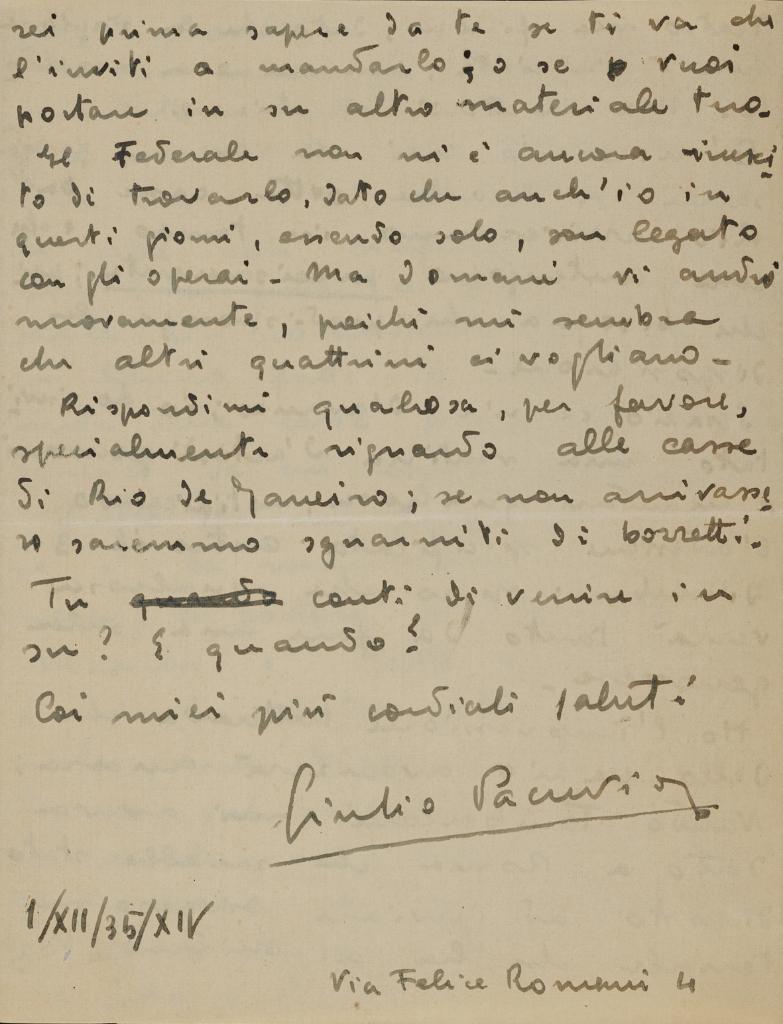 rei prima sapere da te se ti va che
l'inviti a mandarlo; o se vuoi
portare in su altro materiale tuo.
Il Federale non mi è ancora riusci
to di trovarlo, dato che anch'io in
questi giorni, essendo solo, son legato
con gli operai - Ma domani vi andrò
nuovamente, poichè mi sembra
che altri quattrini ci vogliano -
Rispondimi qualcosa, per favore,
specialmente riguardo alle casse
di Rio de Janeiro; se non arrivasse
ro saremmo sguarniti di bozzetti.
Tu quando conti di venire in
su? E quando?
Coi miei più cordiali saluti
Giulio Pacuvio
1/XII/35/XIV
Via Felice Romani 4